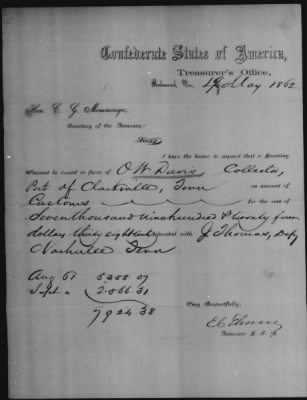 Confederate States of America,
Treasurer's Office,
Richmond, Va., May 1862
Hon. C. G. Memminger,
Secretary of the Treasury:
Sir:
I have the honor to request that a Covering
Warrant be issued in favor of O W Davis Collector,
Port of Clarksville, Tenn on account of
Customs for the sum of
Seven thousand nine hundred & twenty four
dollars thirty eight deposited with J Thomas, Depy
Nashville Tenn
Aug 61 5358.07
Sept " 2566.31
7924.38
Very Respectfully,
Treasurer C. S. A.